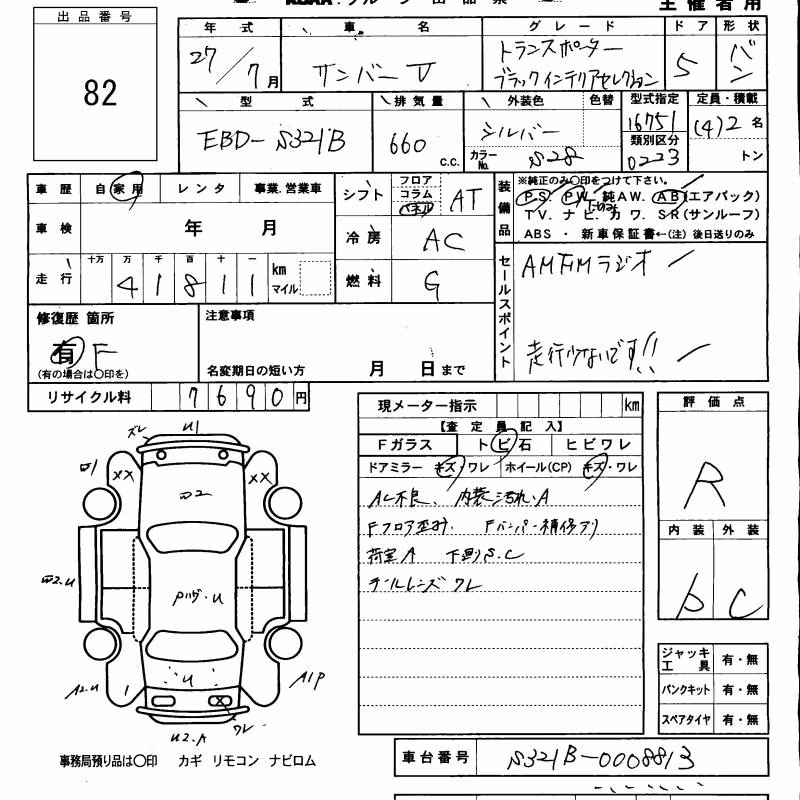 主催者用
出品番号
82
年式 車名 グレード ドア 形状
27/7月 サンバーV トランスポーター
ブラックインテリアセレクション 5 バン
型式 排気量 外装色 色替 型式指定 定員・積載
EBD-S321B 660 c.c. シルバー 16751 (4)2名
類別区分
カラーNo. S28 0223 トン
車歴 自家用 レンタ 事業.営業車 シフト フロア コラム パネル AT
装備品 ※純正のみ○印をつけて下さい。
P S. P W. 純A W. A B (エアバック)
T V. ナビ. カワ. S R (サンルーフ)
ABS ・ 新車保証書←(注) 後日送りのみ
車検 年 月 冷房 AC
走行 十万 万 千 百 十 一
41811 km マイル 燃料 G
セールスポイント AMFMラジオ
走行少ないです!!
修復歴 箇所 注意事項
有 F
(有の場合は○印を) 名変期日の短い方 月 日まで
リサイクル料 7690円
現メーター指示 km 評価点
【査定員記入】
Fガラス トビ石 ヒビワレ
ドアミラー キズ/ワレ ホイール(CP) キズ・ワレ
AC不良、内装汚れ、A
Fフロア歪み. Fバンパー補修アリ
荷室A 下廻りS.C
テールレンズ ワレ
R
内装 外装
D C
ズレ U1
W2
W2.U
A2.U
A1P
U
ワレ
U2.A
ジャッキ工具 有・無
パンクキット 有・無
スペアタイヤ 有・無
事務局預り品は○印 カギ リモコン ナビロム
車台番号 S321B-0008813